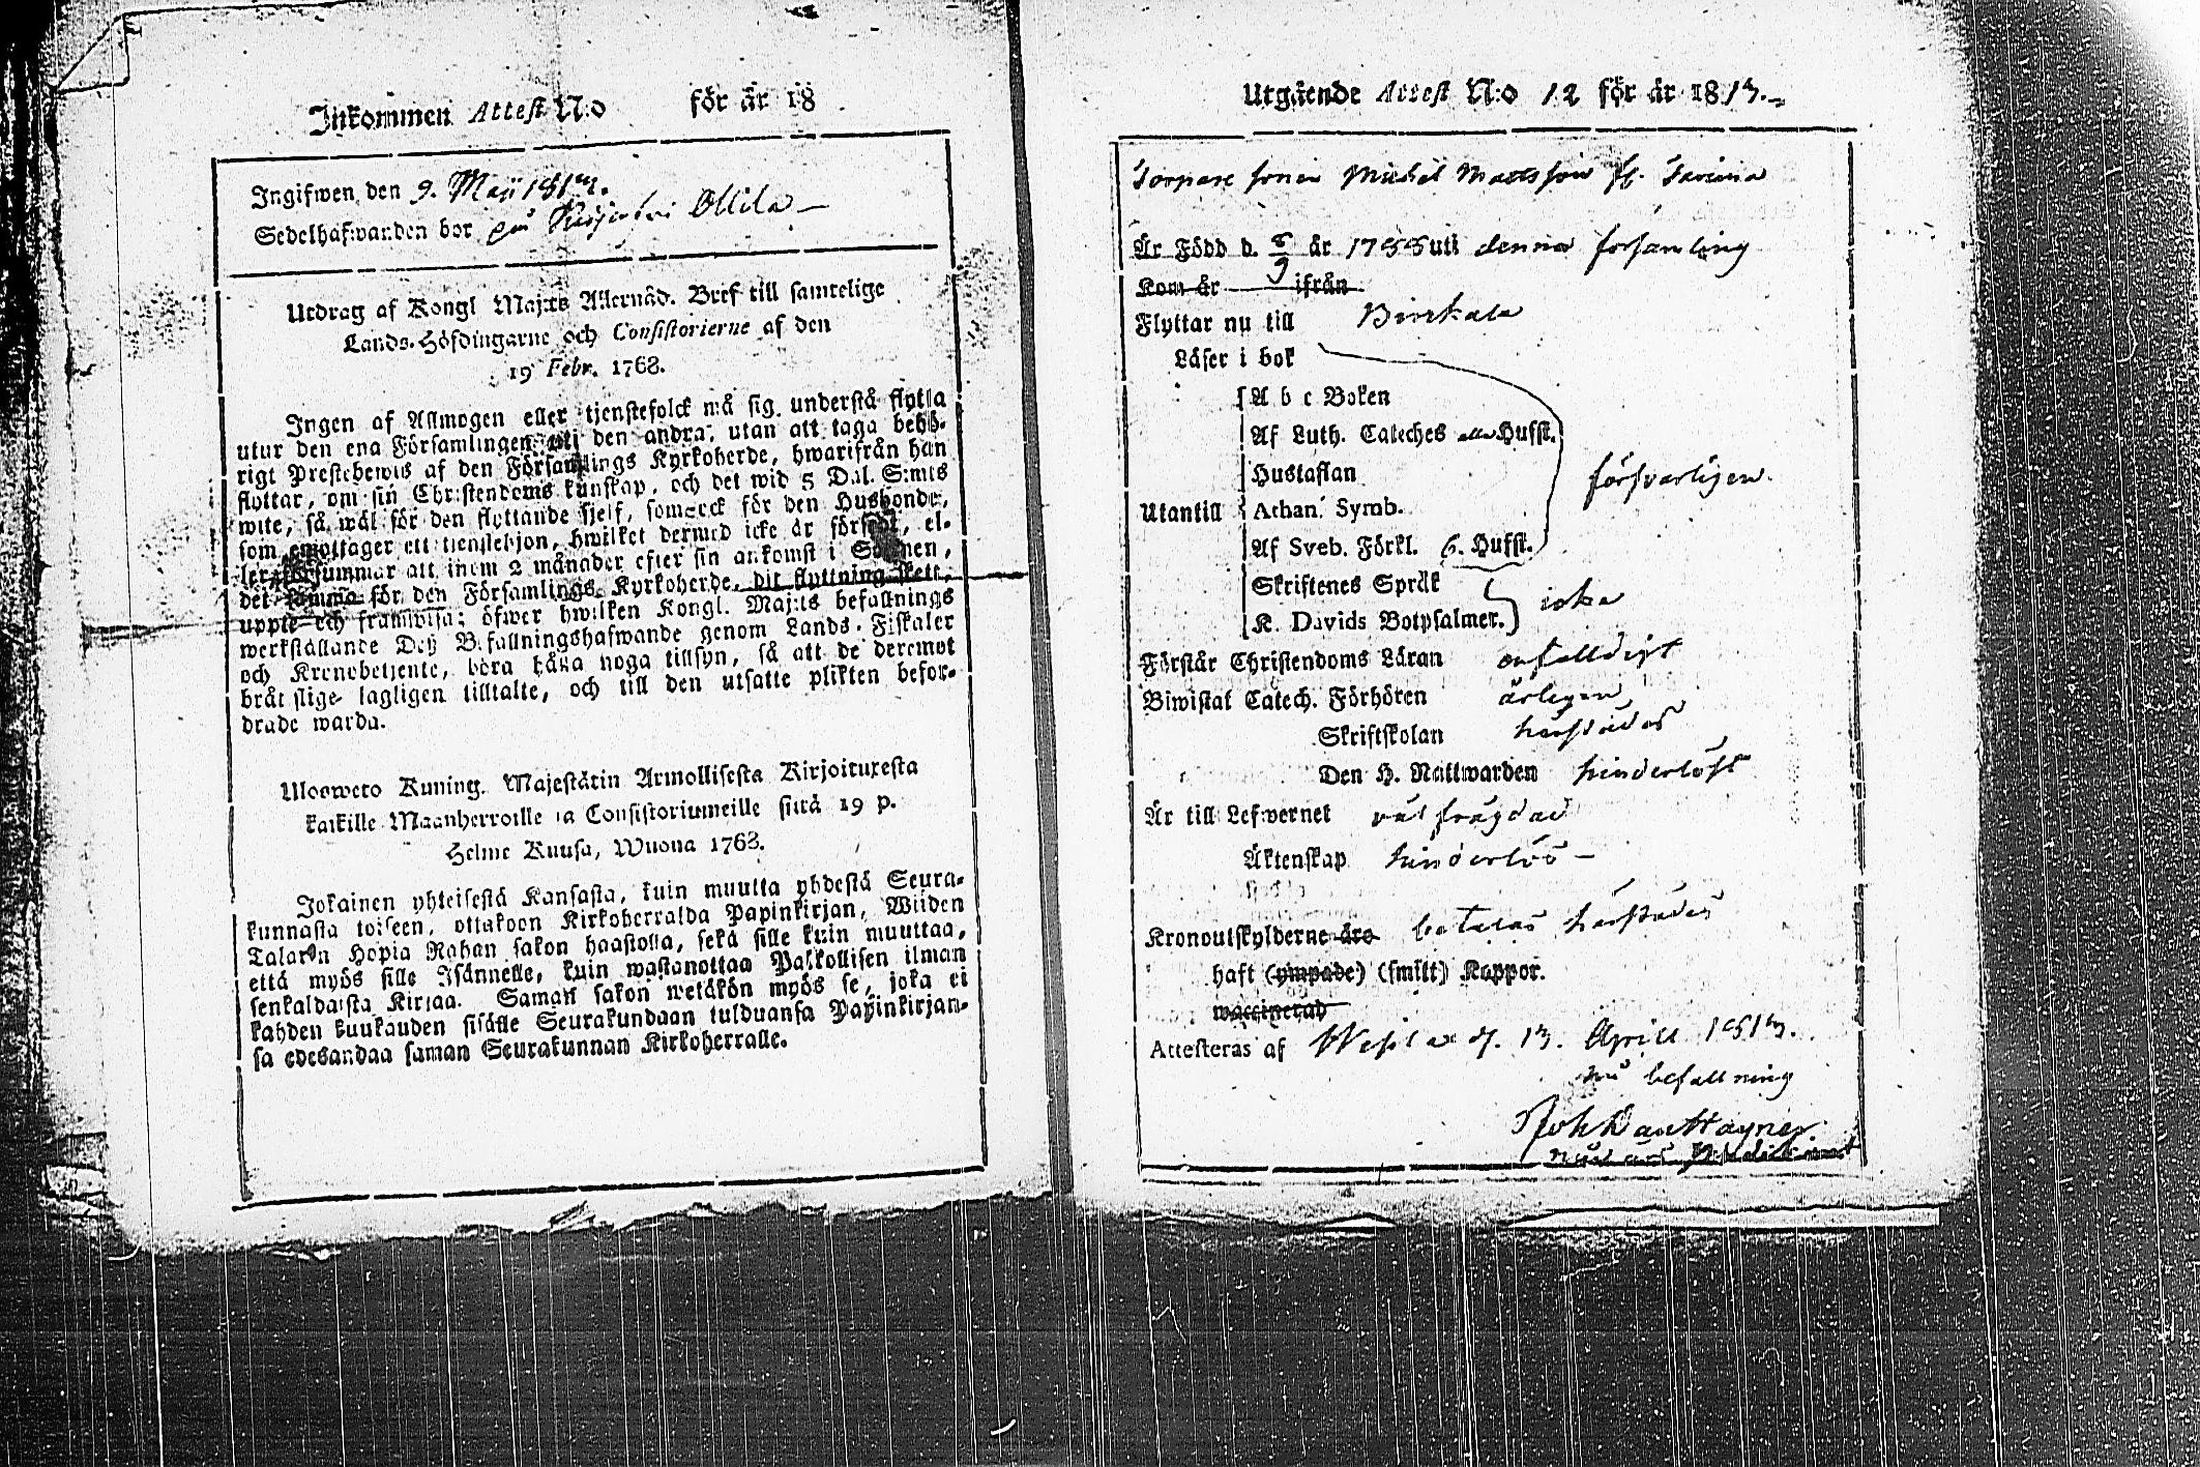 Inkommen Attest N:o för år 18
Ingifwen den 9. Maji 1813.
Sedelhafwanden bor på Ollila
Utdrag af Kongl Maj:ts Allernåd. Bref till samtelige
Lands-Höfdingarne och Consistorierne af den
19 Febr. 1768.
Ingen af Allmogen eller tjenstefolck må sig understå flytta
utur den ena Församlingen uti den andra, utan att taga behö-
rigt Prestebewis af den Församlings Kyrkoherde, hwarifrån han
flyttar, om sin Christendoms kunskap, och det wid 5 Dal. S:mts
wite, så wäl för den flyttande sjelf, som ock för den Husbonde,
som emottager ett tienstehjon, hwilket dermed icke är försedt, el-
ler försummar att inom 2 månader efter sin ankomst i Socknen,
det samma för den Församlings Kyrkoherde, dit flyttning skett,
uppte och framwisa; öfwer hwilken Kongl. Maj:ts befallnings
werkställande Deß Befallningshafwande genom Lands-Fiskaler
och Kronobetjente, böra hålla noga tillsyn, så att de deremot
bråtslige lagligen tilltalte, och till den utsatte plikten befor-
drade warda.
Ulosweto Kuning. Majestätin Armollisesta Kirjoituxesta
kaikille Maanherroille ja Consistoriumeille siitä 19 p.
Helme Kuusa, Wuona 1768.
Jokainen yhteisestä Kansasta, kuin muutta yhdestä Seura-
kunnasta toiseen, ottakoon Kirkoherralda Papinkirjan, Wiiden
Talarin Hopia Rahan sakon haastolla, sekä sille kuin muuttaa,
että myös sille Isännelle, kuin wastanottaa Palkollisen ilman
senkaldaista Kirjaa. Saman sakon wetäkön myös se, joka ei
kahden kuukauden sisälle Seurakundaan tulduansa Papinkirjan-
sa edesandaa saman Seurakunnan Kirkoherralle.
Utgående Attest N:o 12 för år 1813.
Torpare sonen Michel Mattsson fr.
Är Född d. 6/9 år 1788 uti denna församling
Kom år ifrån
Flyttar nu till Birkala
Läser i bok
A b c Boken
Af Luth. Cateches Husst.
Hustaflan
försvarligen.
Utantill Athan. Symb.
Af Sveb. Förkl. Husst.
Skriftenes Språk
icke
K. Davids Botpsalmer.
Förstår Christendoms Läran enfalldigt
Biwistat Catech. Förhören årligen
Skriftskolan härstädes
Den H. Nattwarden hinderlöst
Är till Lefwernet väl frägdad
Äktenskap hinderlös
Kronoutskylderne äro betalas härstädes
haft (ympade) (smitt) Koppor.
waccinerad
Attesteras af d. 13. Aprill 1813.
befallning